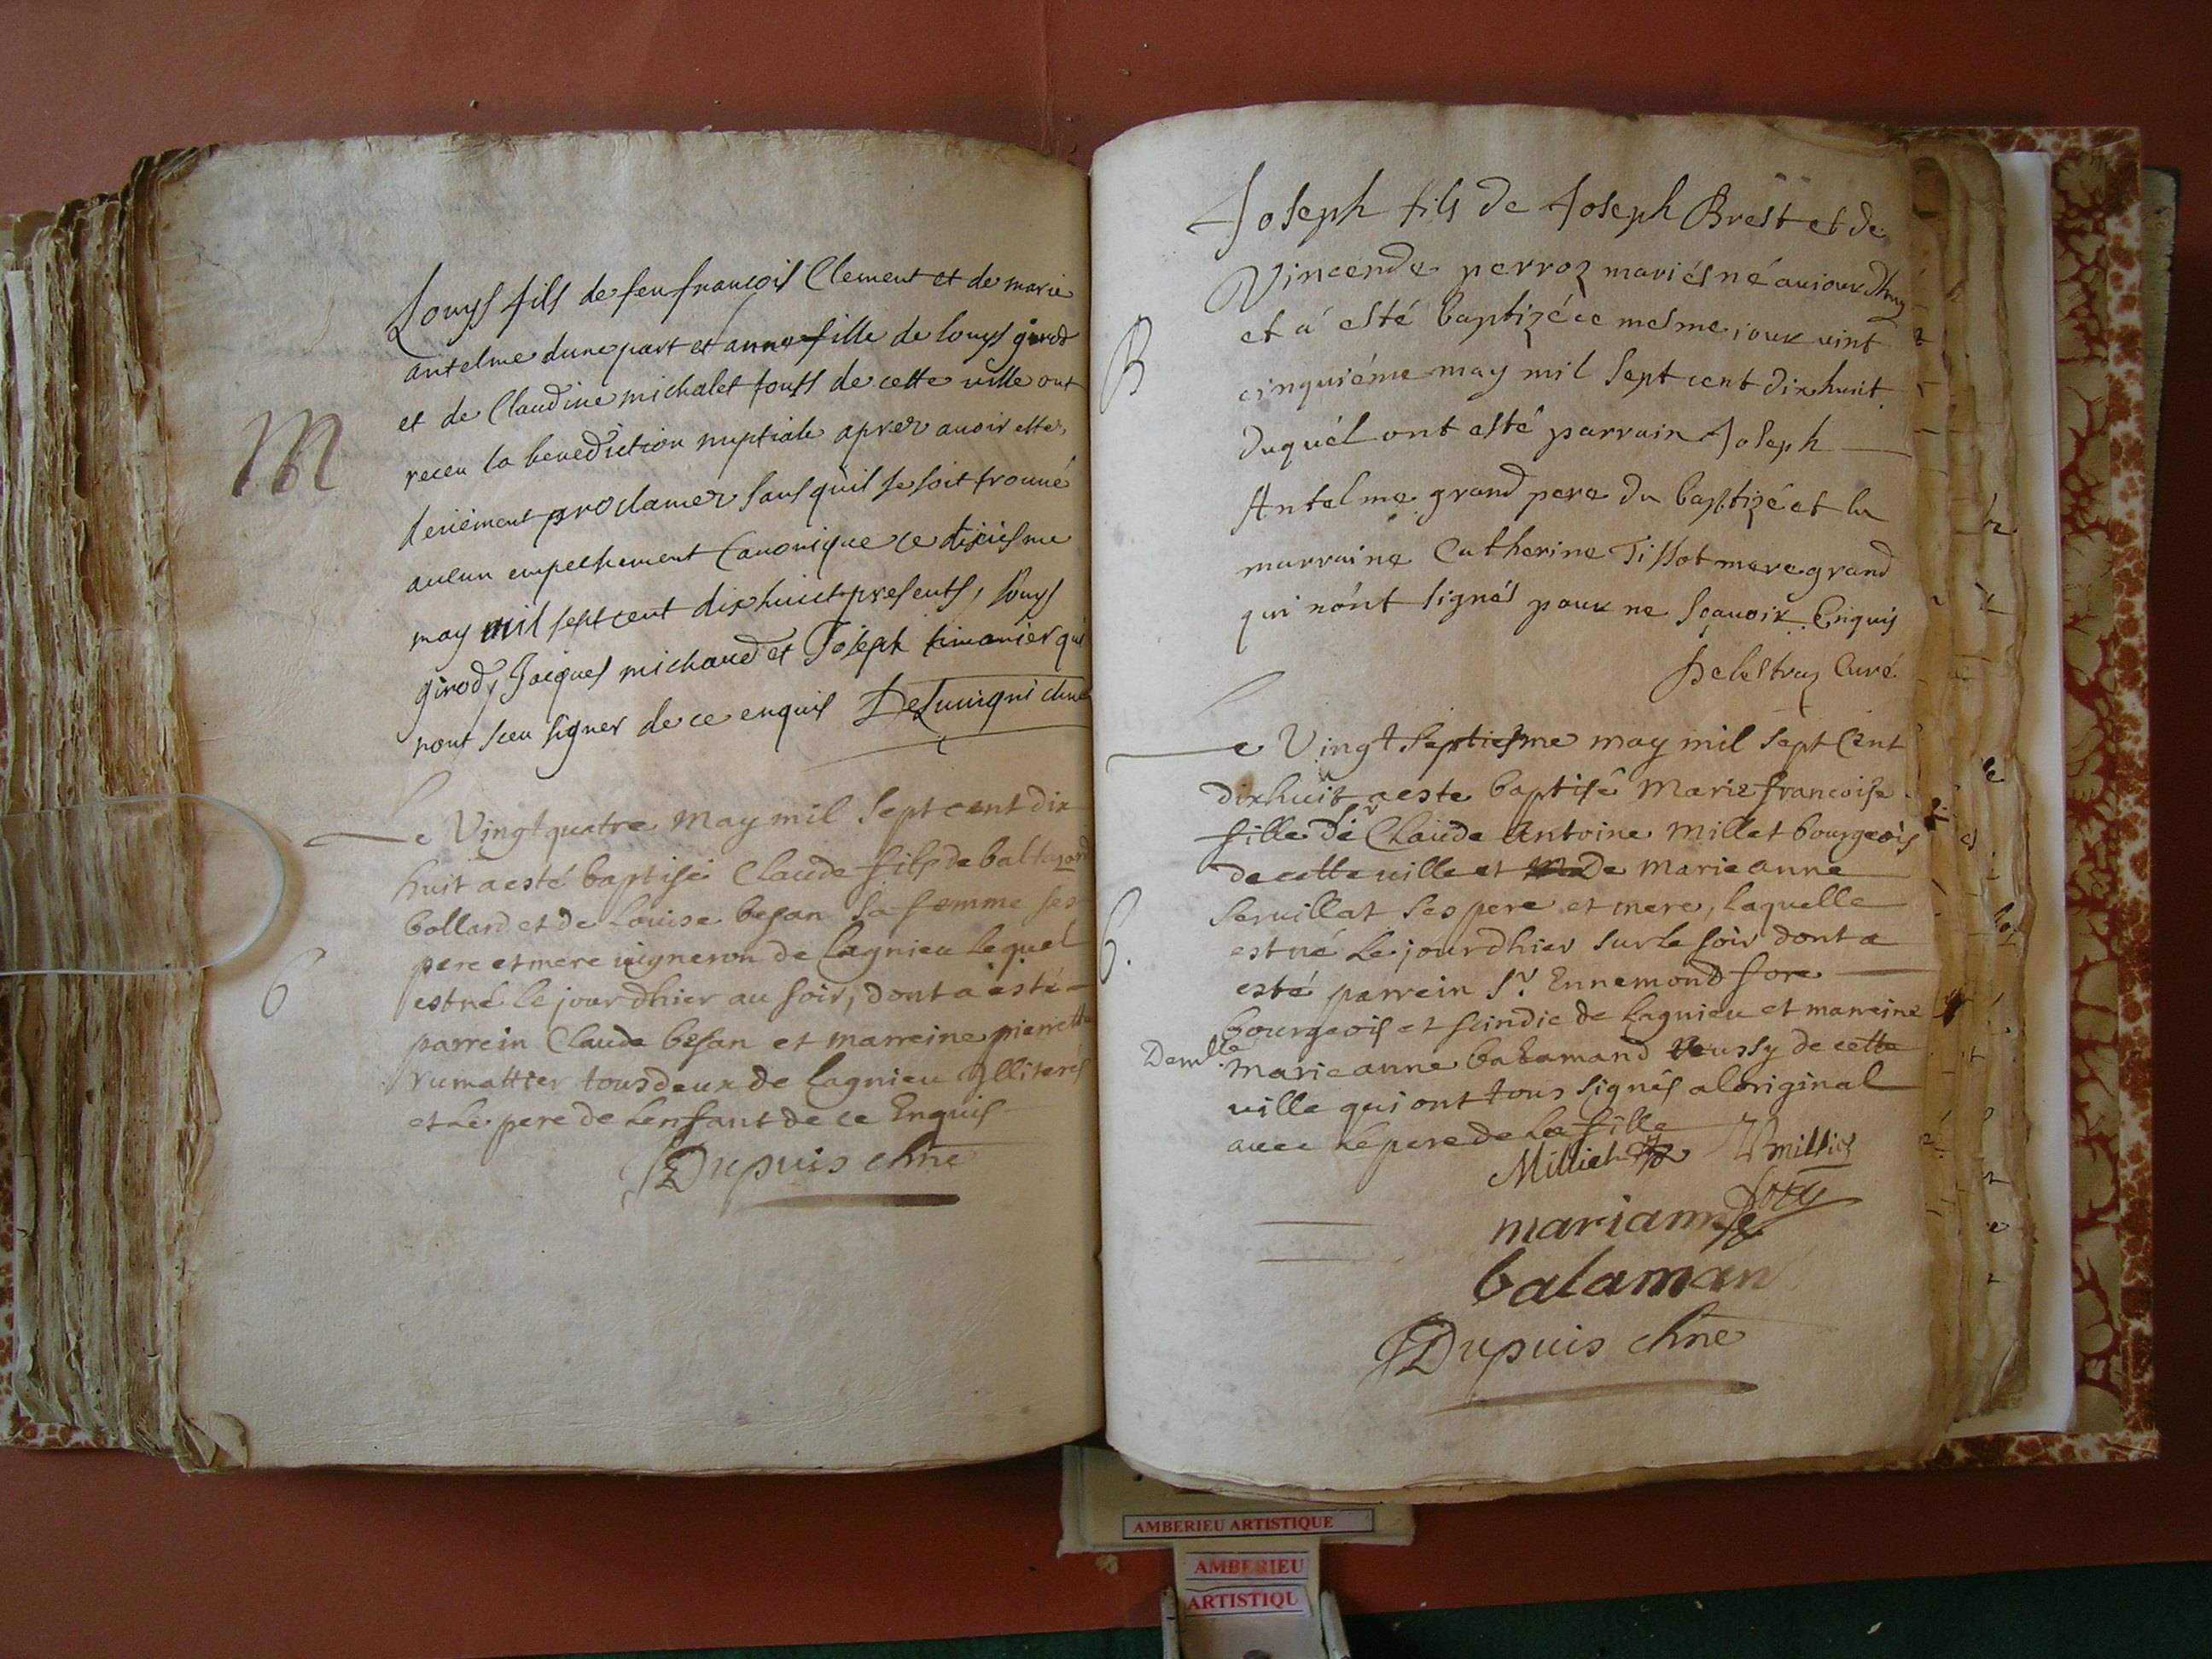 Louys fils de feu francois Clement et de marie
antelme dune part et anne fille de louys girod
M
et de Claudine michalet touts de cette ville ont
receu la benediction nuptiale aprez avoir estes
deuement proclamez sans quil se soit trouué
aulcun empeschement Canonique ce dixiesme
may mil sept cent dix huict presents, louys
girod, Jacques michaud et Joseph qui
nont sceu signer de ce enquis
Le Vingt quatre May mil Sept cent dix
huit a esté baptisé Claude fils de baltazard
bollard et de Louise besan sa femme ses
pere et mere vigneron de Lagnieu lequel
B
est né le jourdhier au soir, dont a esté
parrein Claude besan et marreine pierrette
rumattier tous deux de Lagnieu Illiterés
et le pere de lenfant de ce Enquis
Dupuis chne
Joseph fils de Joseph Brest et de
Vincende perroz mariés né auiourdhuy
B
et a esté baptizé ce mesme iour vint
cinquiéme may mil sept cent dixhuit
duquél ont esté parrain Joseph
Antelme grand pere du baptizé et la
marraine Catherine Tissot mere grand
qui nónt signés pour ne sçauoir Enquis
Delestraz Curé
Le Vingt Septiesme may mil sept Cent
dixhuit a este baptisé Marie francoise
fille de Sr Claude Antoine Millet bourgeois
de cette ville et De Marie anne
Seruillat ses pere et mere, laquelle
est né le jourdhier sur le soir dont a
B.
esté parrein Sr. Ennemond fore
bourgeois et scindic de Lagnieu et marreine
Demlle Marie anne balamand aussy de cette
ville qui ont tous signés a loriginal
avec le pere de la fille
Milliet
marianne
balaman
Dupuis chne
AMBERIEU ARTISTIQUE
AMBERIEU
ARTISTIQU